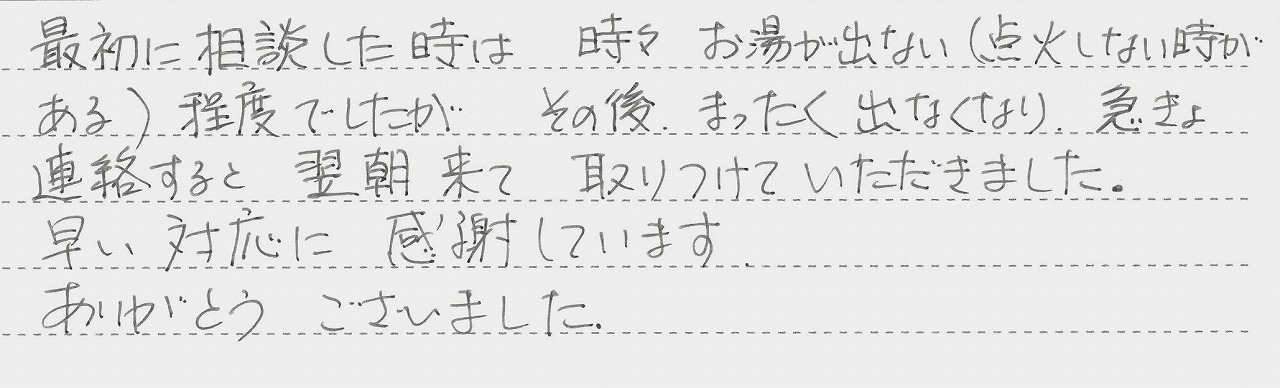 最初に相談した時は 時々 お湯が出ない(点火しない時が
ある)程度でしたが その後、まったく出なくなり、急きょ
連絡すると 翌朝来て 取りつけていただきました。
早い対応に 感謝しています.
ありがとう ございました.